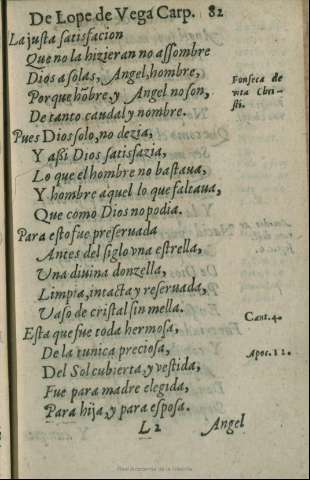 De Lope de Vega Carp. 82
La justa satisfacion
Que no la hizieran no assombre
Dios a solas, Angel, hombre,
Porque hõbre, y Angel no son,
De tanto caudal y nombre.
Fonseca de
vita Chri-
sti.
Pues Dios solo, no dezia,
Y assi Dios satisfazia,
Lo que el hombre no bastaua,
Y hombre aquel lo que faltaua,
Que como Dios no podia.
Para esto fue preseruada
Antes del siglo vna estrella,
Vna diuina donzella,
Limpia, intacta y reseruada,
Vaso de cristal sin mella.
Cant. 4.
Esta que fue toda hermosa,
De la tunica preciosa,
Apoc. 12.
Del Sol cubierta, y vestida,
Fue para madre elegida,
Para hija, y para esposa.
L 2
Angel
Real Academia de la Historia